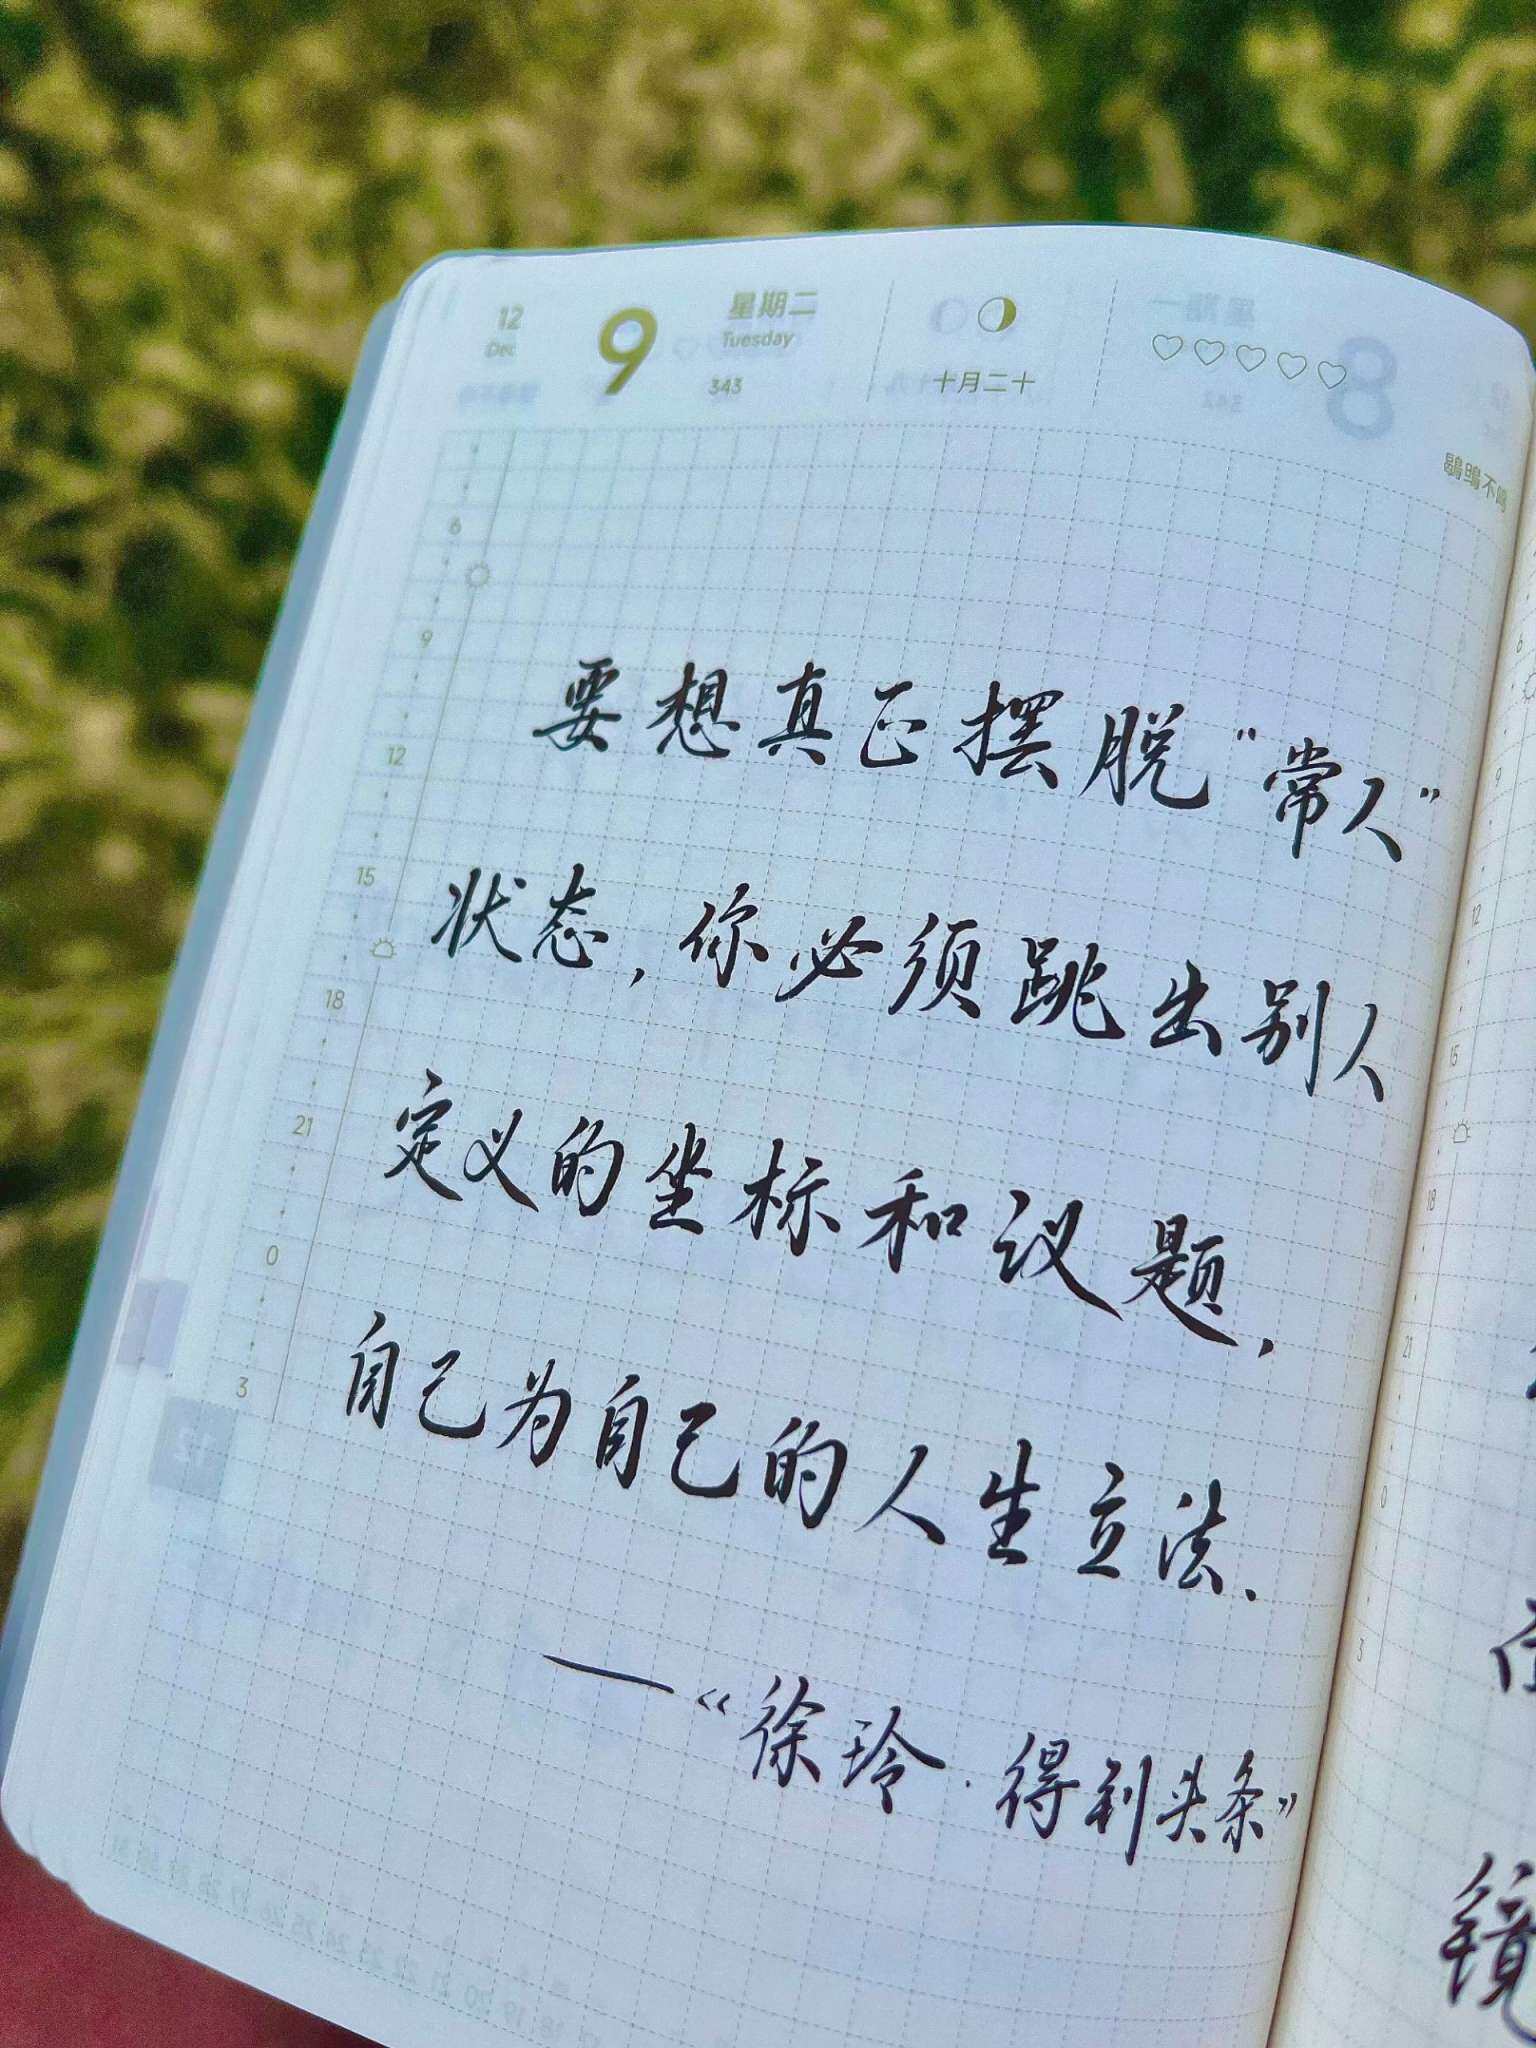 12
Dec
9
星期二
Tuesday
343
十月二十
8
342
鶡鴠不鸣
6
9
12
15
18
21
0
3
要想真正摆脱“常人”
状态，你必须跳出别人
定义的坐标和议题，
自己为自己的人生立法.
—《徐玲·得到头条》
6
9
12
15
18
21
0
3
镜